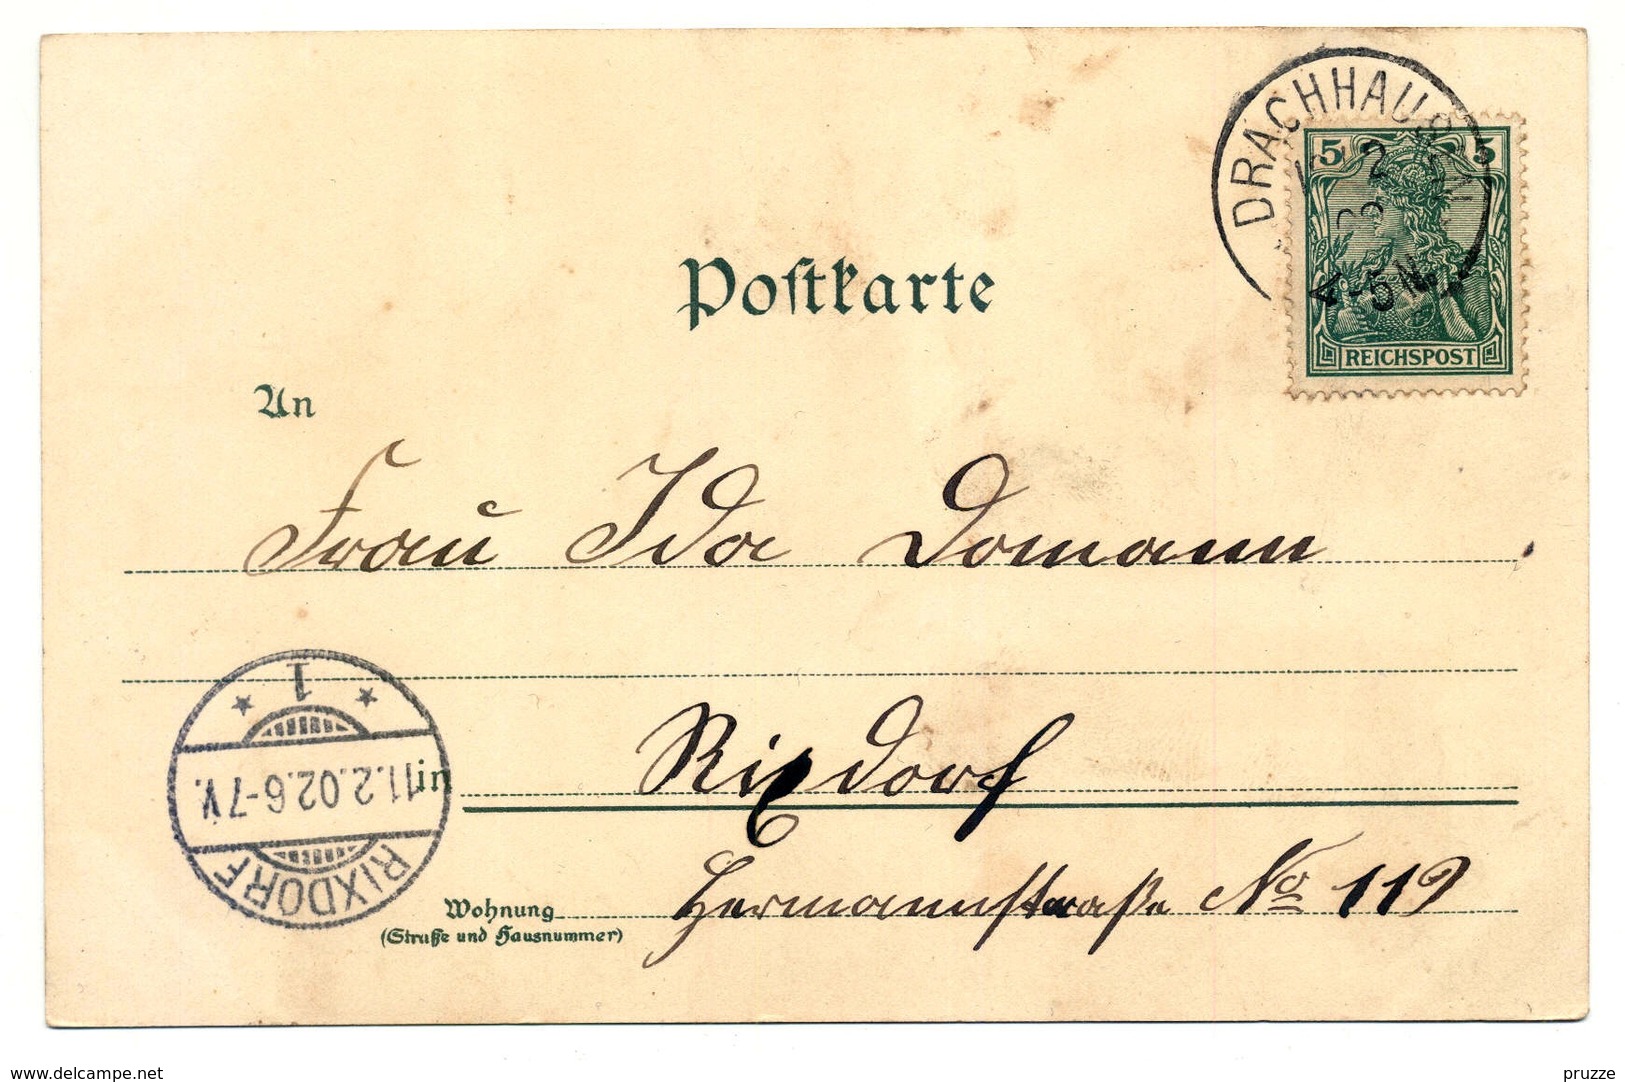 DRACHHAUSEN
2
02
4-5N.
5 5
REICHSPOST
Postkarte
An
Frau Ida Domann
1
11.2.02.6-7V.
RIXDORF
in Rixdorf
Wohnung Hermannstraße No 119
(Straße und Hausnummer)
www.delcampe.net
pruzze